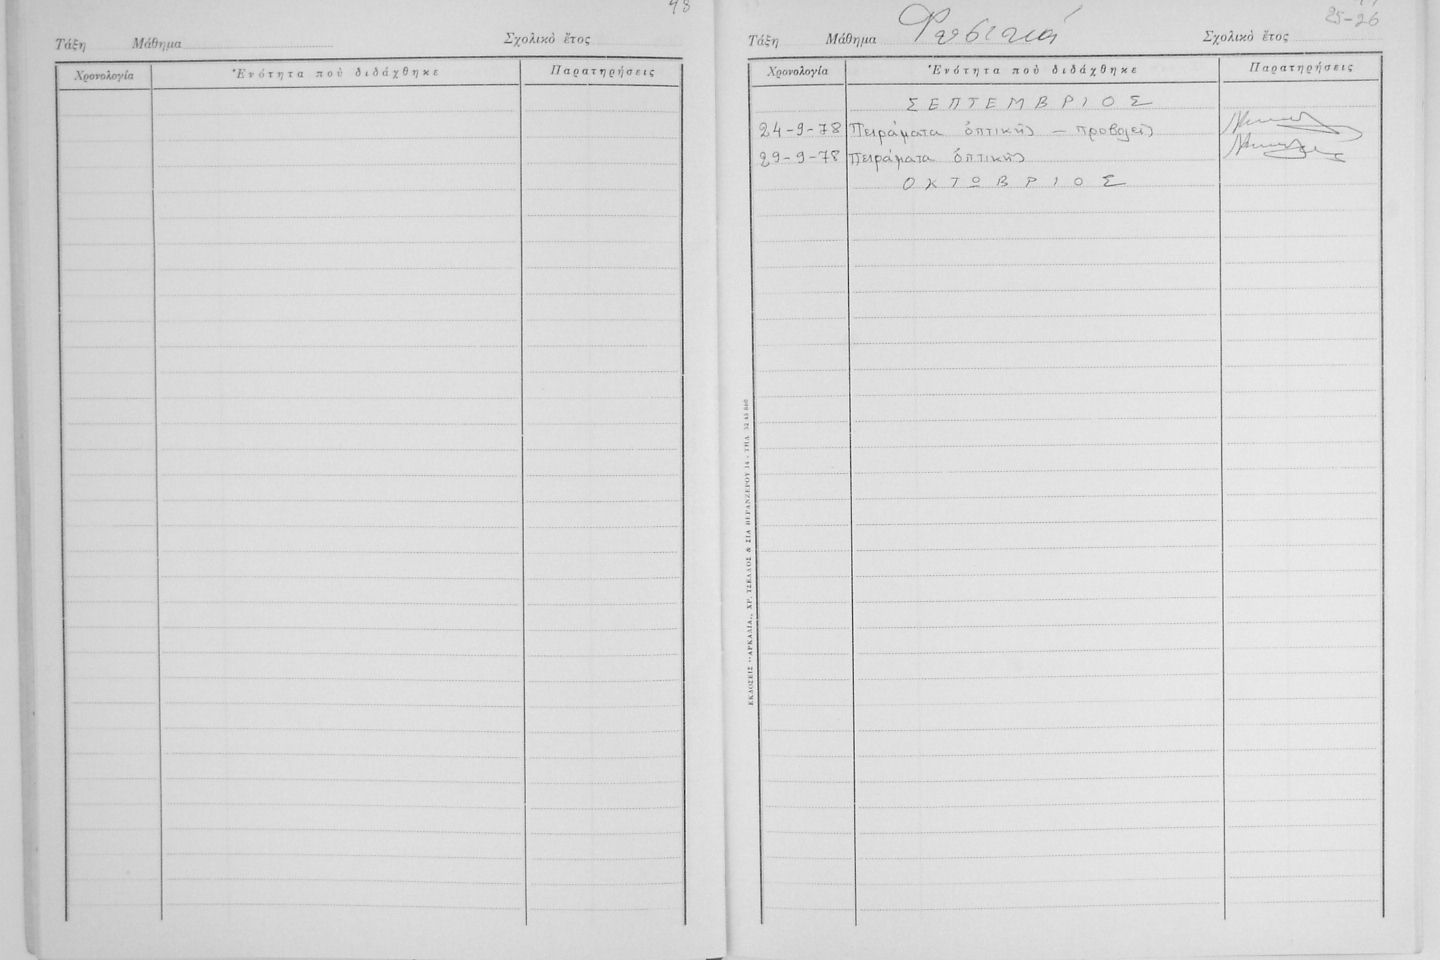 48
Τάξη Μάθημα Σχολικὸ ἔτος
Χρονολογία Ἑνότητα ποὺ διδάχθηκε Παρατηρήσεις
25-26
Τάξη Μάθημα Φυσικά Σχολικὸ ἔτος
Χρονολογία Ἑνότητα ποὺ διδάχθηκε Παρατηρήσεις
ΣΕΠΤΕΜΒΡΙΟΣ
24-9-78 Πειράματα ὀπτικῆς - προβολεῖς
29-9-78 Πειράματα ὀπτικῆς
ΟΚΤΩΒΡΙΟΣ
ΕΚΔΟΣΕΙΣ "ΑΡΚΑΔΙΑ,, ΧΡ. ΤΣΕΛΛΟΣ & ΣΙΑ ΒΕΡΑΝΖΕΡΟΥ 14 - ΤΗΛ.